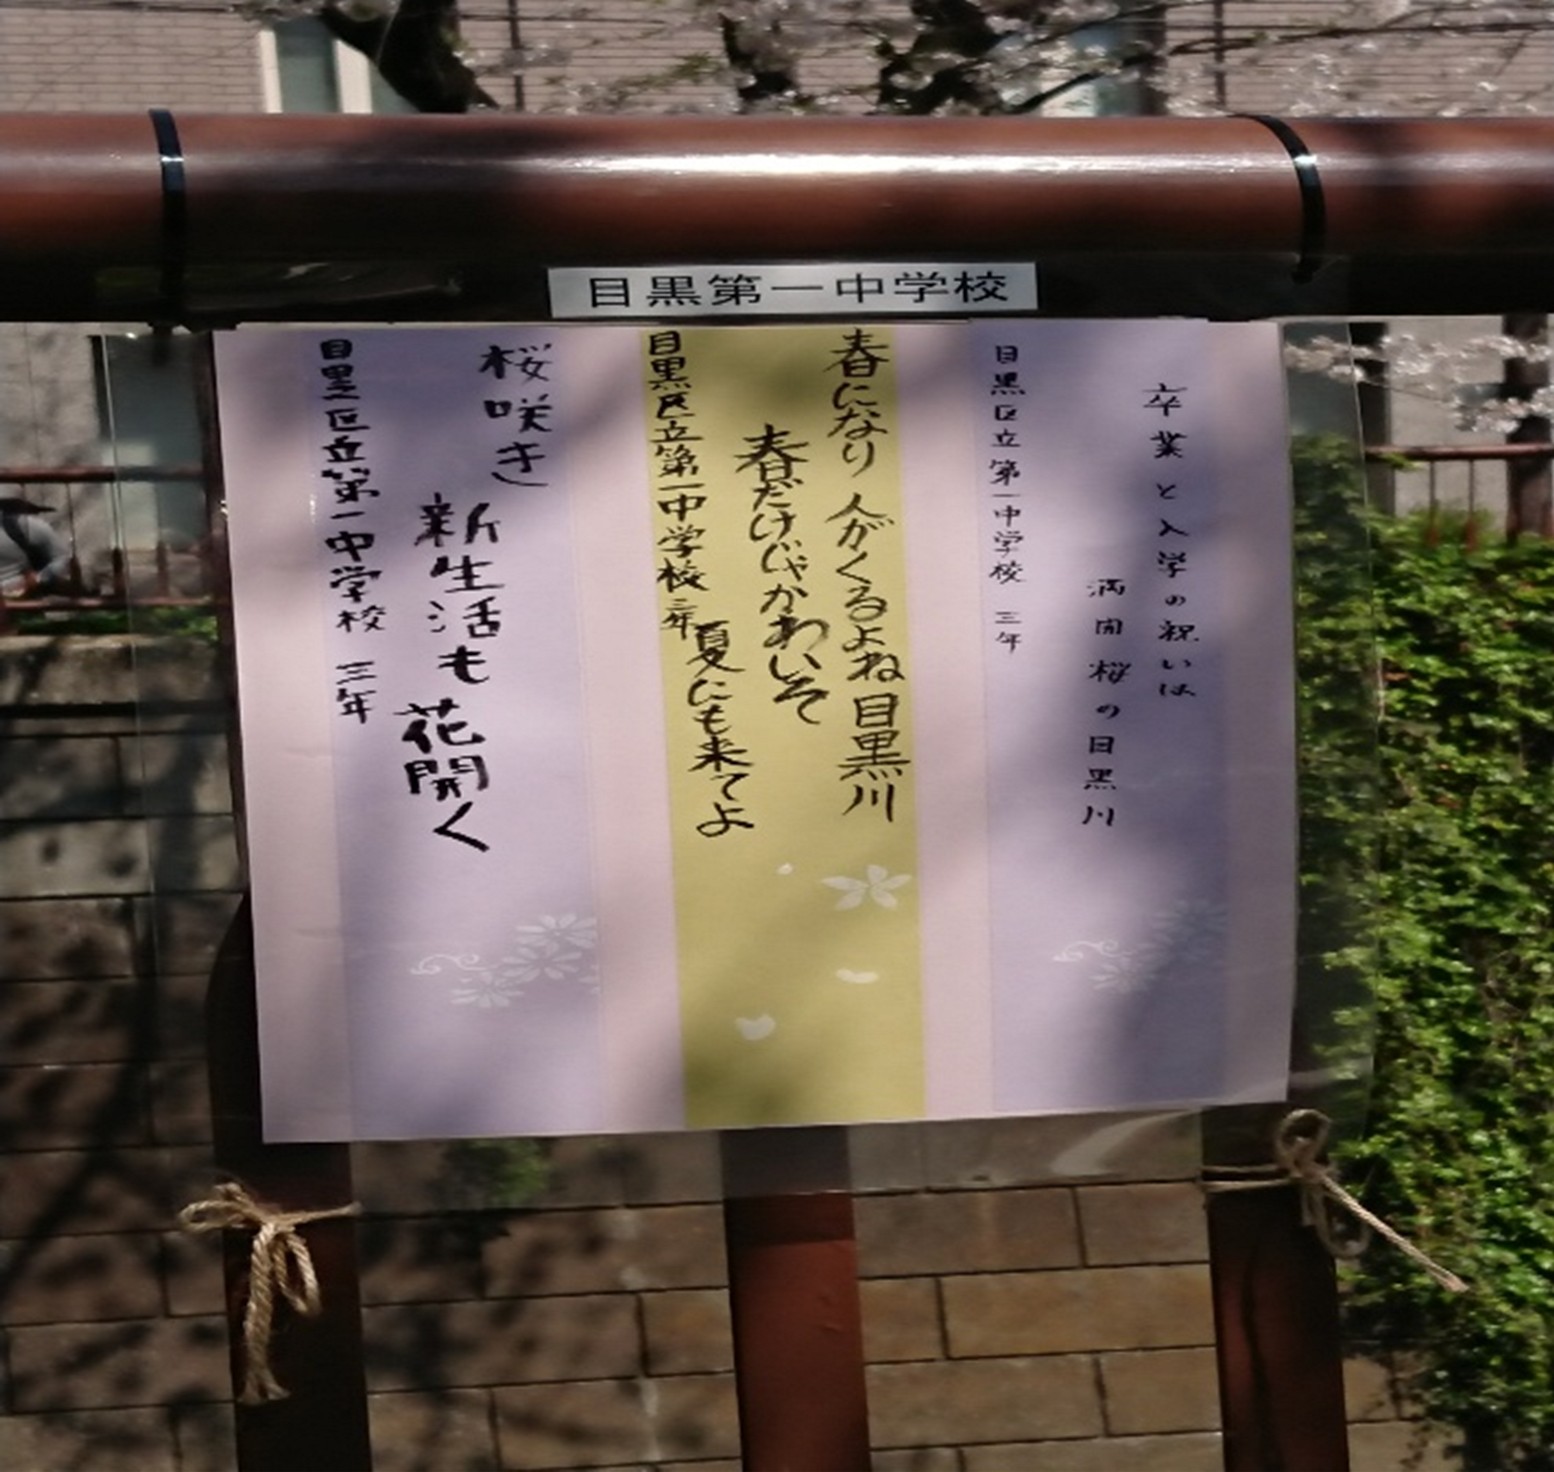 目黒第一中学校
卒業と入学の祝いは
満開桜の目黒川
目黒区立第一中学校 三年
春になり 人がくるよね目黒川
春だけじゃかわいそ
夏にも来てよ
目黒区立第一中学校 三年
桜咲き
新生活も
花開く
目黒区立第一中学校 三年